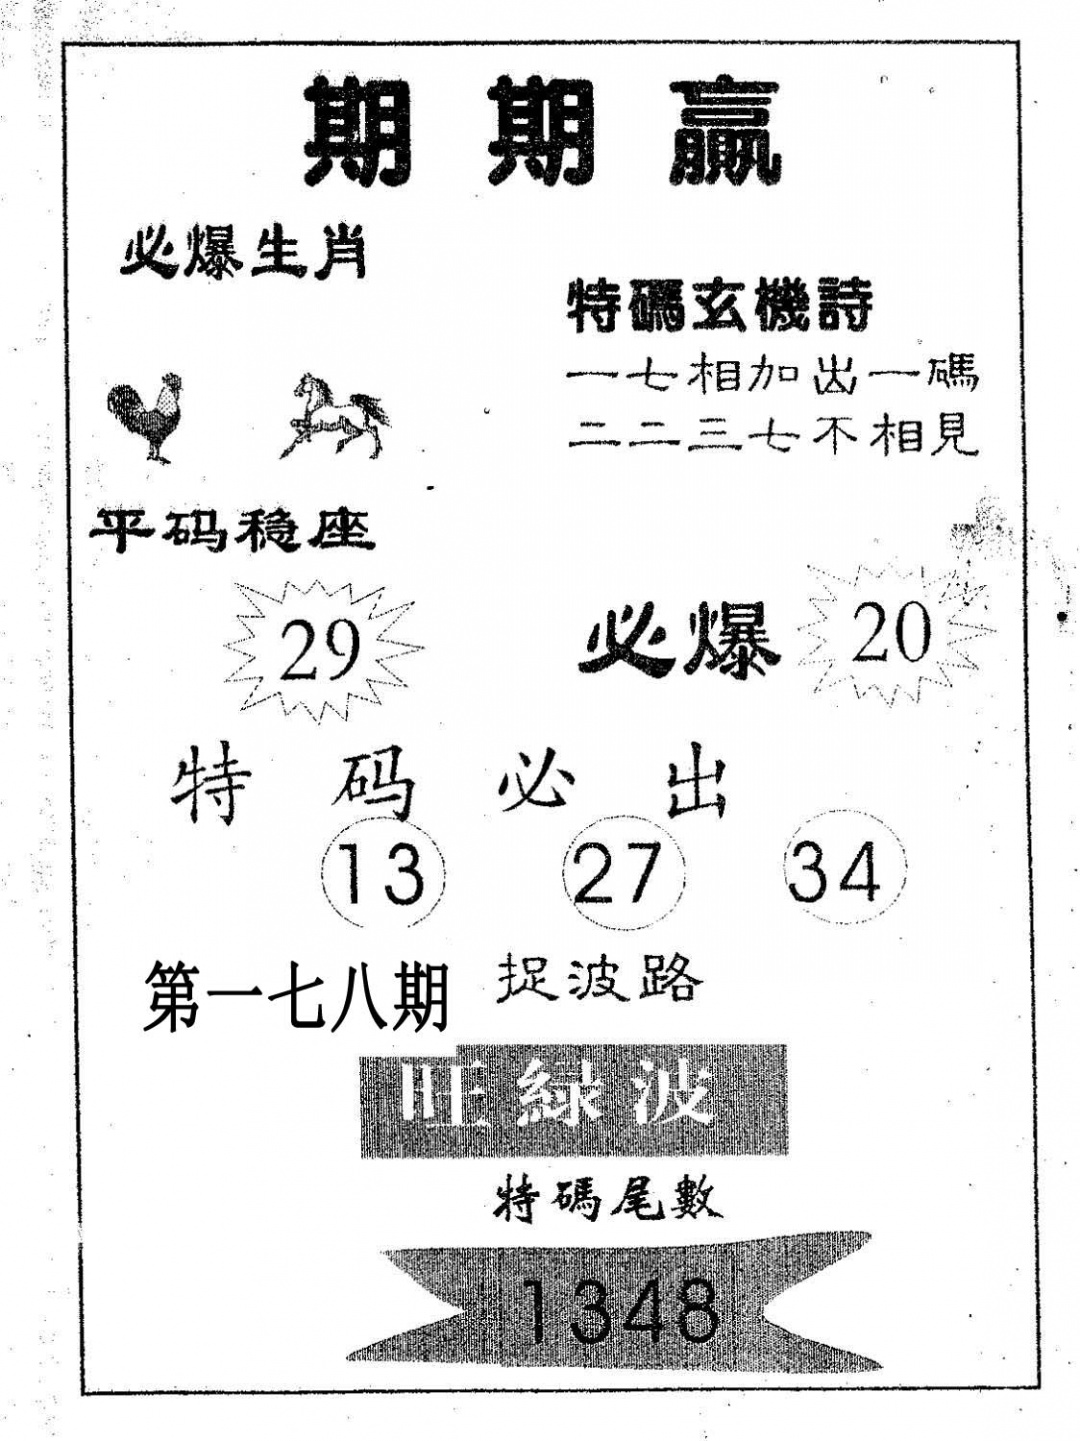 期期贏
必爆生肖
特碼玄機詩
一七相加出一碼
二二三七不相見
平码稳座
29
必爆 20
特码必出
13 27 34
第一七八期 捉波路
旺綠波
特碼尾數
1348